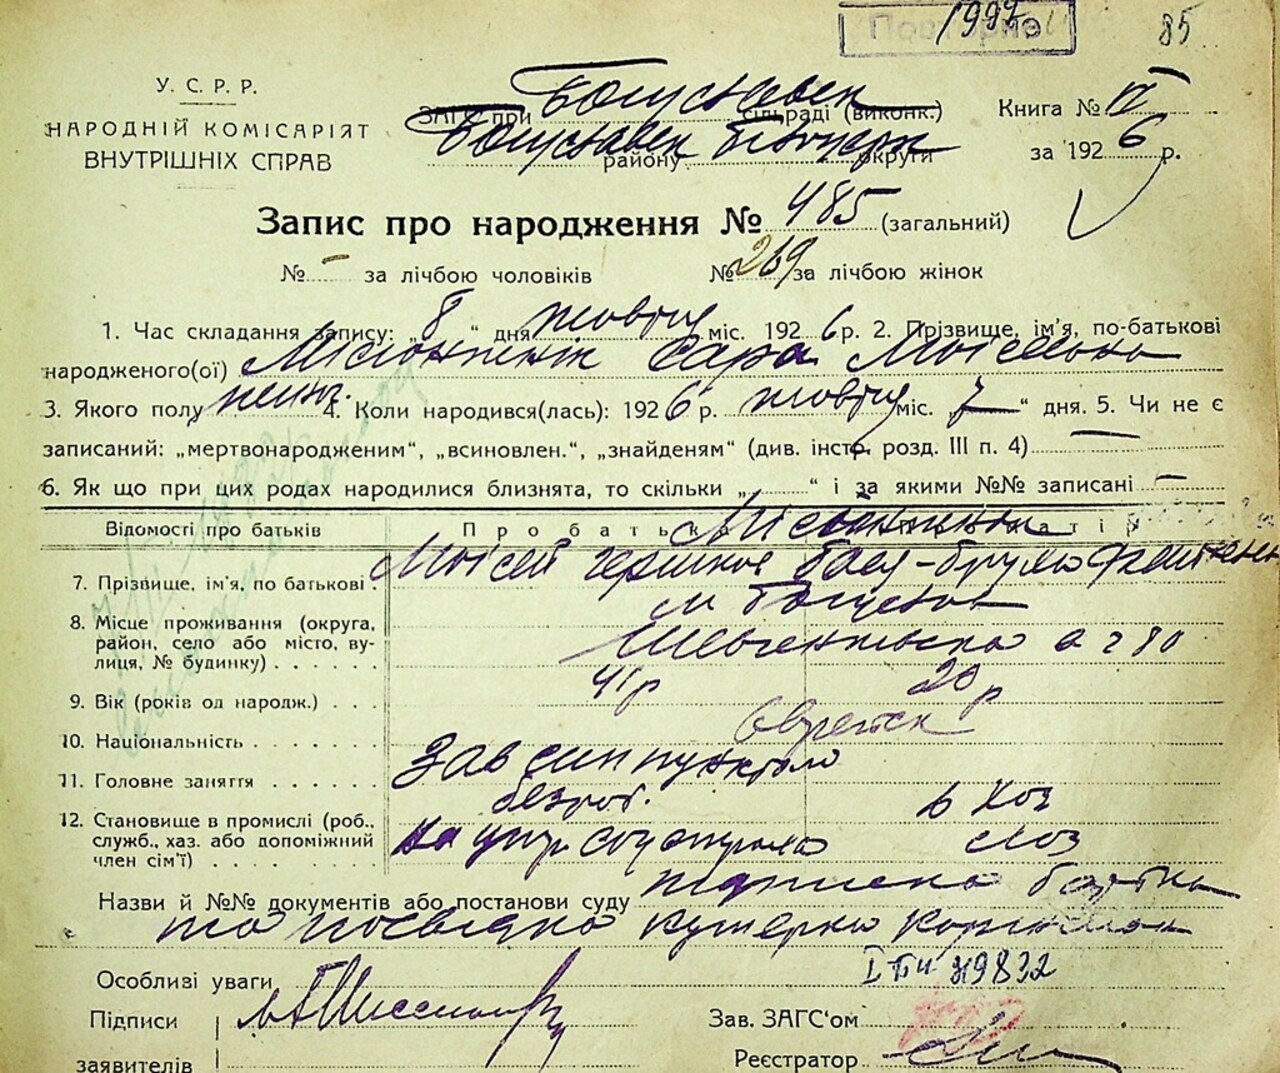 1997 85
Повторно
У. С. Р. Р.
НАРОДНІЙ КОМІСАРІЯТ
ВНУТРІШНІХ СПРАВ
ЗАГС при Богуславск сільраді (виконк.)
Богуславск району Білоцерк округи
Книга № IV
за 1926 р.
Запис про народження № 485 (загальний)
№ – за лічбою чоловіків № 269 за лічбою жінок
1. Час складання запису: „8“ дня жовтня міс. 1926 р. 2. Прізвище, ім'я, по-батькові
народженого(ої) Сара Моісеевна
3. Якого полу жіноч. 4. Коли народився(лась): 1926 р. жовтня міс. „7“ дня. 5. Чи не є
записаний: „мертвонародженим“, „всиновлен.“, „знайденям“ (див. інстр. розд. III п. 4) –
6. Як що при цих родах народилися близнята, то скільки „ “ і за якими №№ записані –
Відомості про батьків Про батька Про матір
7. Прізвище, ім'я, по батькові Моісей
8. Місце проживання (округа, район, село або місто, вулиця, № будинку) м Богуслав
Шевченківська 80
9. Вік (років од народж.) 41 р 20 р
10. Національність Єврейск
11. Головне заняття Зав пунктом
безроб. в хоз
12. Становище в промислі (роб., служб., хаз. або допоміжний член сім'ї) на утр. соцстраха
Назви й №№ документів або постанови суду підписка батька
та
Особливі уваги І БЧ 319832
Підписи
заявителів
Зав. ЗАГС'ом
Реєстратор